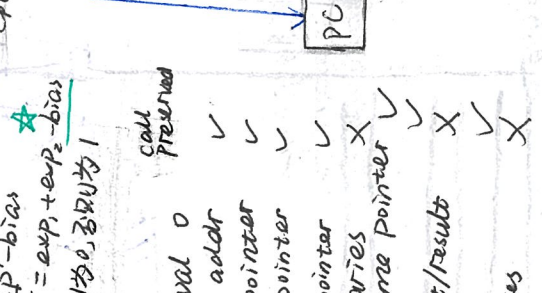 PC
-bias
= exp₁ + exp₂ - bias
为0, 否则为1
call
Preserved
val 0 ✓
addr ✓
pointer ✓
pointer ✓
aries ×
me pointer ✓
✓
t/result ×
✓
es ×